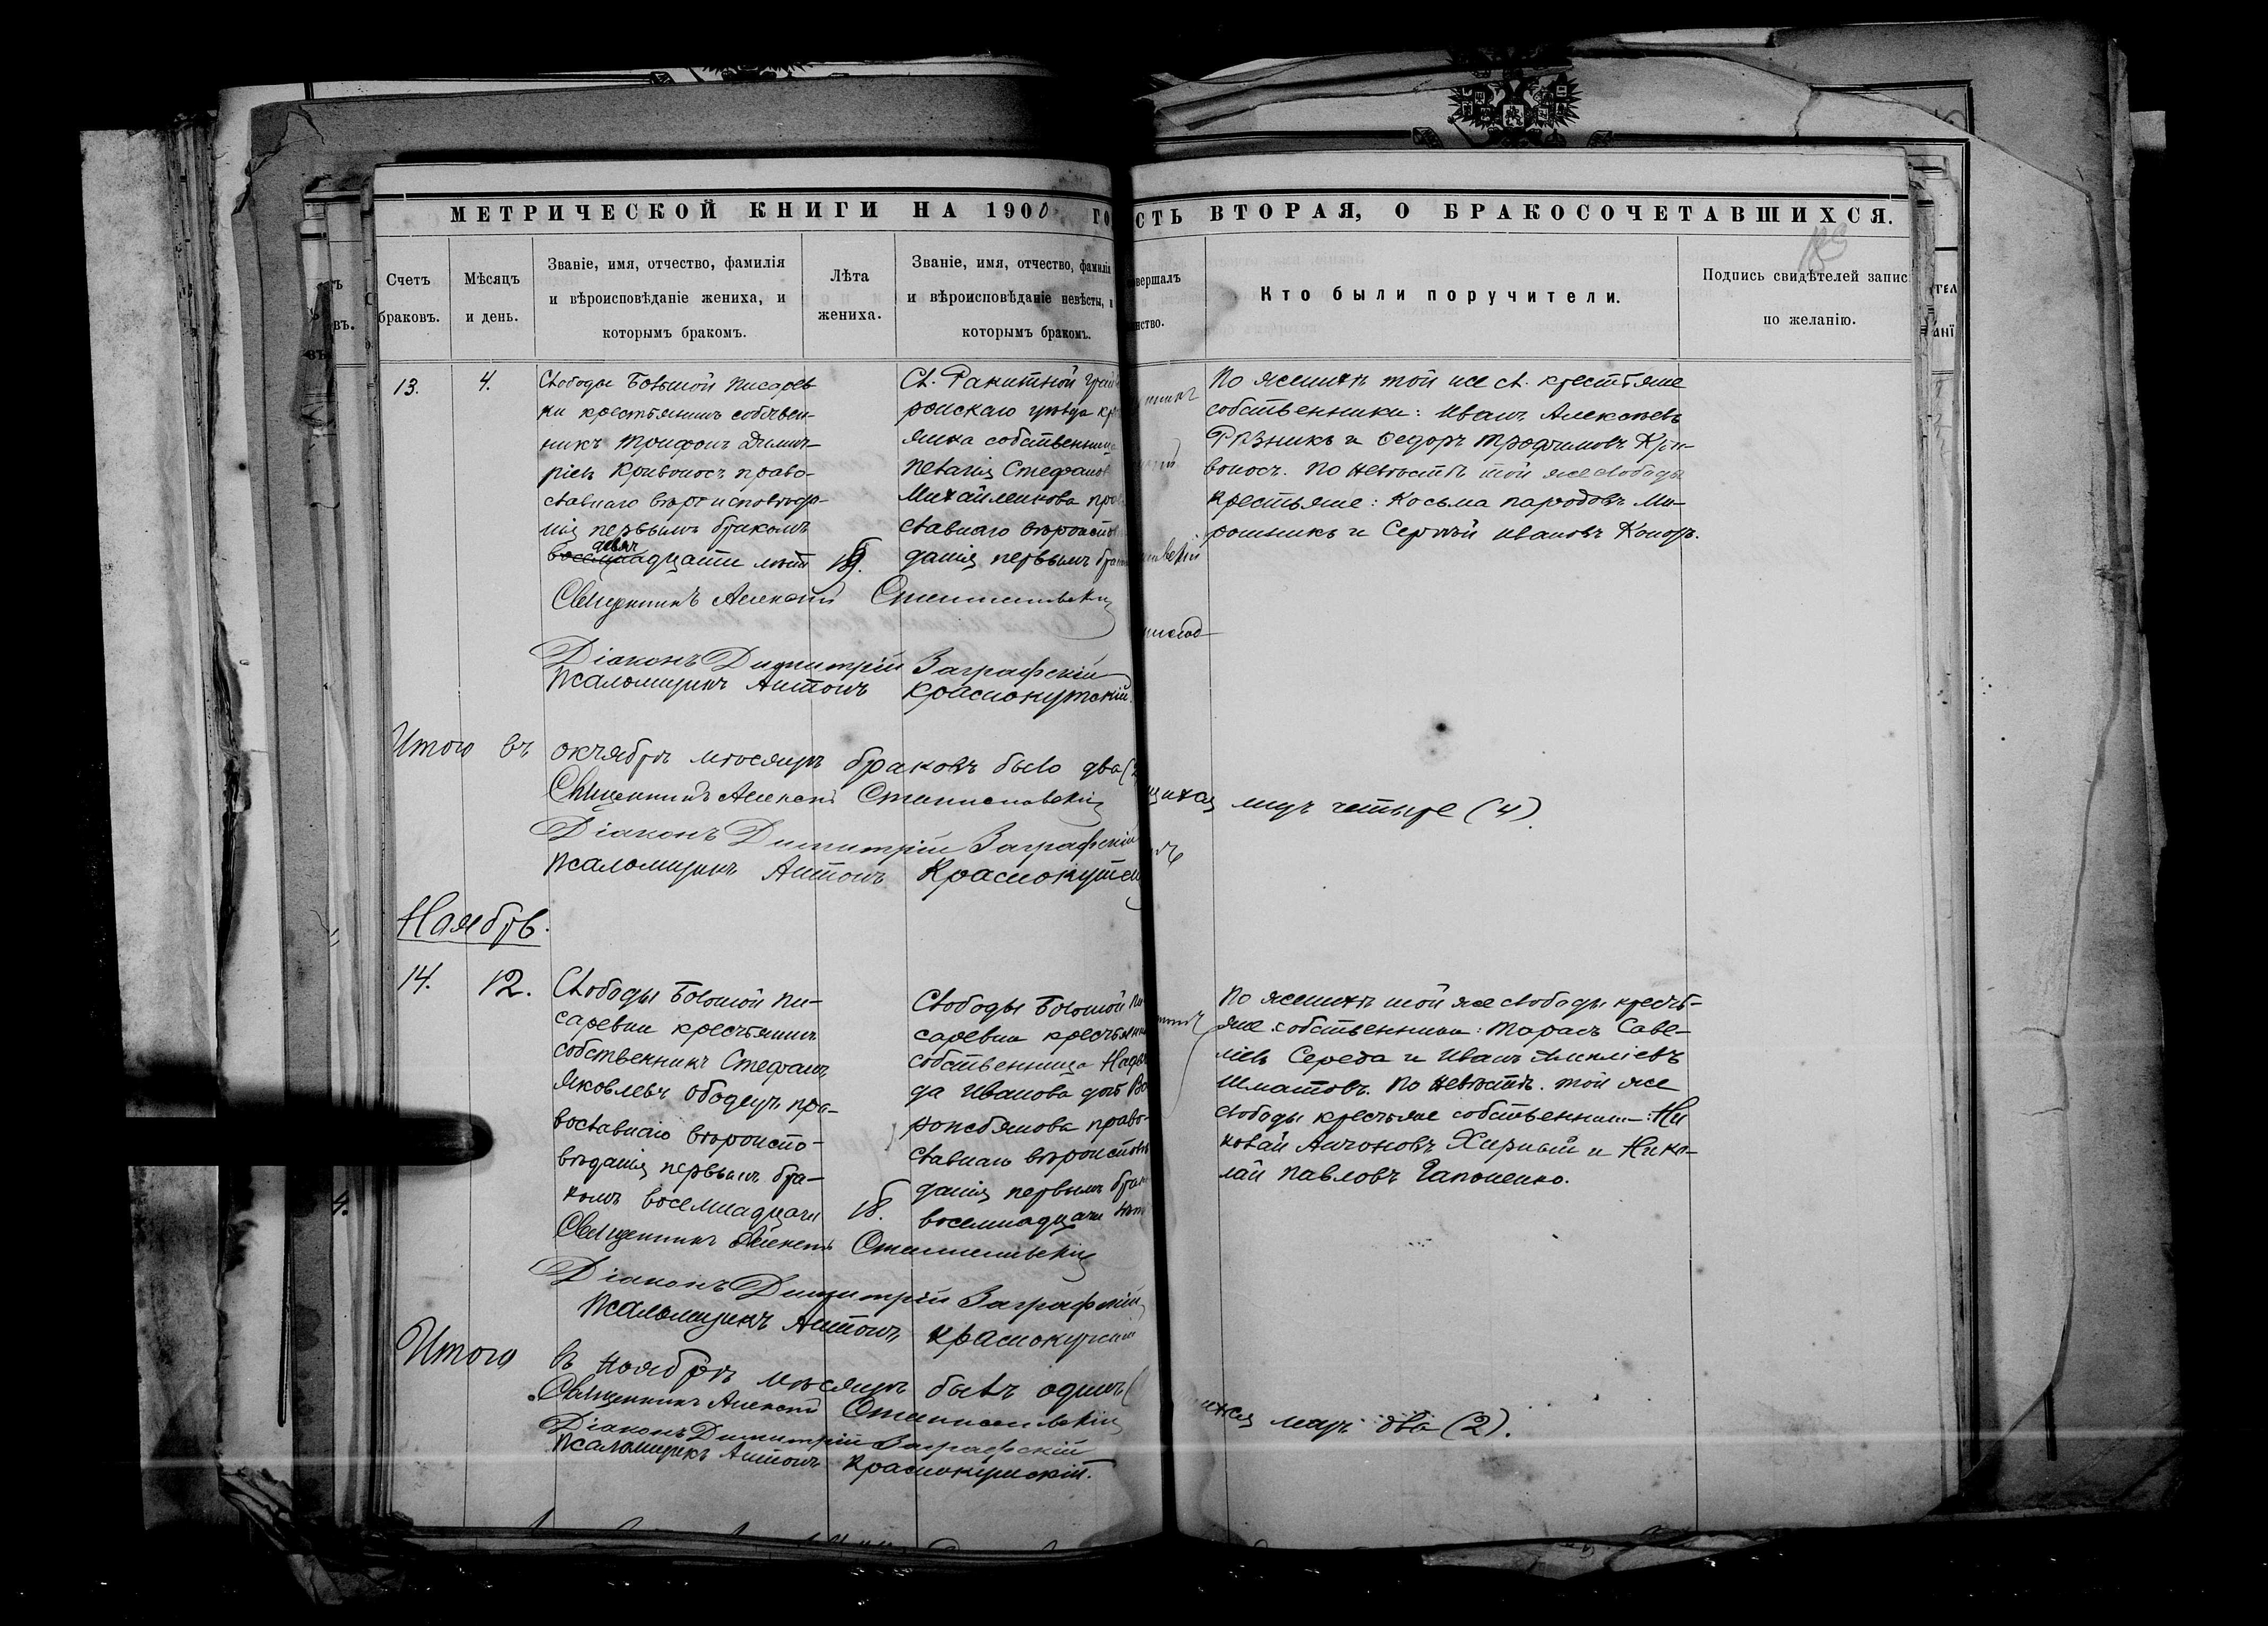 МЕТРИЧЕСКОЙ КНИГИ НА 1900 ГО
СТЬ ВТОРАЯ, О БРАКОСОЧЕТАВШИХСЯ.
Счетъ
браковъ.
Мѣсяцъ
и день.
Званіе, имя, отчество, фамилія
и вѣроисповѣданіе жениха, и
которымъ бракомъ.
Лѣта
жениха.
Званіе, имя, отчество, фамилія
и вѣроисповѣданіе невѣсты, и
которымъ бракомъ.
вершалъ
нство.
Кто были поручители.
Подпись свидѣтелей запис
по желанію.
13.
4.
Слободы Большой Писарев
ки крестьянинъ собствен-
никъ Трифонъ Дмит-
ріевъ Кривоносъ право-
славнаго вѣроисповѣда-
нія первымъ бракомъ
девят
восемнадцати лѣтъ
19.
Сл. Ракитной Грай
ронскаго уѣзда кр
янка собственница
Пелагія Стефанов
Михайленкова пра
славнаго вѣроиспов
данія первымъ брак
По женихѣ той же сл. крестьяне
собственники: Иванъ Алексѣевъ
Рѣзникъ и Ѳедоръ Трофимовъ Кри-
воносъ. По невѣстѣ той же слободы
крестьяне: Косьма Ми-
рошникъ и Сергѣй Ивановъ Коноръ.
Священникъ Алексѣй Станиславскій
Діаконъ Димитрій Заграфскій
Псаломщикъ Антонъ Краснокутскій.
Итого въ октябрѣ мѣсяцѣ браковъ было два (2
щихся лицъ четыре (4).
Священникъ Алексѣй Станиславскій
Діаконъ Димитрій Заграфскій
Псаломщикъ Антонъ Краснокутск
Ноябрь.
14.
12.
Слободы Большой Пи-
саревки крестьянинъ
собственникъ Стефанъ
Яковлевъ Ободецъ пра-
вославнаго вѣроиспо-
вѣданія первымъ бра-
комъ восемнадцати
18.
Слободы Большой Пи
саревки крестьянка
собственница Надеж
да Иванова дочь Во
ронсбянова право-
славнаго вѣроисповѣ
данія первымъ брак
восемнадцати лѣт
По женихѣ той же слободы кресть-
яне собственники: Тарасъ Саве-
ліевъ Середа и Иванъ
Шматовъ. По невѣстѣ. той же
слободы крестьяне собственники: Ни
колай Антоновъ Хирный и Нико-
лай Павловъ Гапоненко.
Священникъ Алексѣй Станиславскій
Діаконъ Димитрій Заграфскій
Псаломщикъ Антонъ Краснокутскій
Итого въ ноябрѣ мѣсяцѣ былъ одинъ (
ихся лицъ два (2).
Священникъ Алексѣй Станиславскій
Діаконъ Димитрій Заграфскій
Псаломщикъ Антонъ Краснокутскій.